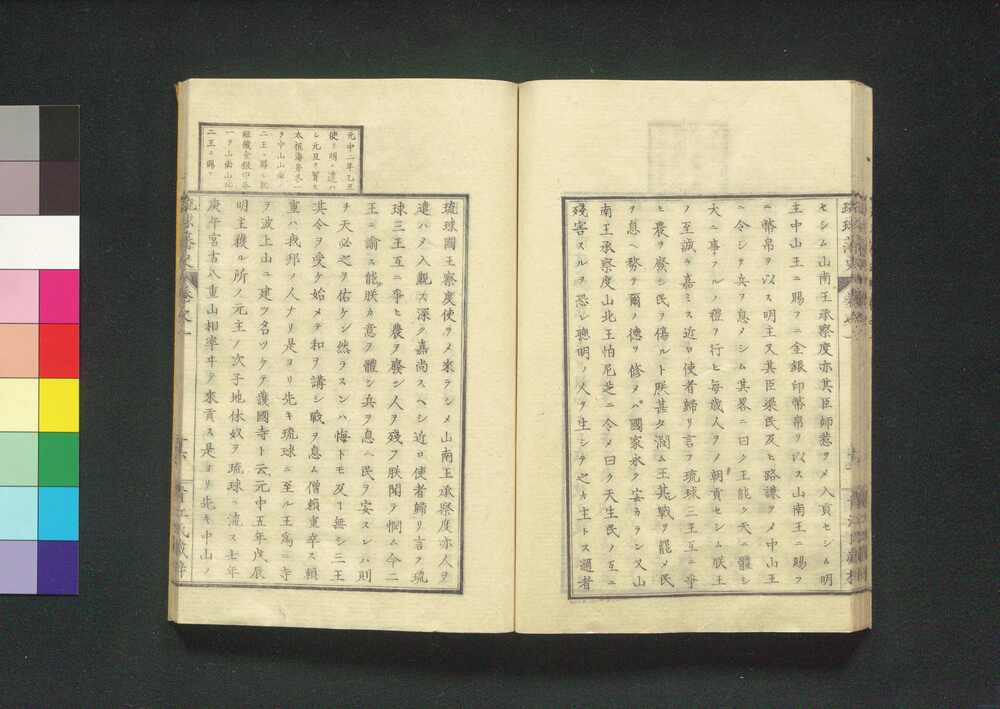 セシム山南王承察度亦其臣師惹ヲメ入貢セシム明
主中山王ニ賜フニ金銀印幣帛ヲ以ス山南王ニ賜フ
ニ幣帛ヲ以ス明主又其臣梁民及ヒ路謙ヲメ中山王
ニ令シテ兵ヲ息メシム其畧ニ曰ク王能ク天ニ體シ
大ニ事フルノ禮ヲ行ヒ毎歳人ヲメ朝貢セシム朕王
ノ至誠ヲ嘉ミス近ロ使者歸リ言フ琉球三王互ニ爭
ヒ農ヲ廢シ民ヲ傷ルト朕甚タ憫ム王其戰ヲ罷メ民
ヲ息ヘ務ヲ爾ノ德ヲ修メハ國家永ク安カラン又山
南王承察度山北王怕尼芝ニ令メ曰ク天生民ノ互ニ
殘害スルヲ恐レ聰明ノ人ヲ生シテ之カ主トス邇者
琉球藩史
卷之一
元中二年乙丑
使ヲ明ニ遣ハ
シ元旦ヲ賀ス
太祖海舟各一
ヲ中山山南ノ
二王ニ賜
一ヲ山南山北
二王ニ賜フ
琉球國王察度使ヲメ來ラシメ山南王承察度亦人ヲ
遣ハメ入覲ス深ク嘉尚スヘシ近ロ使者歸リ言フ琉
球三王互ニ爭ヒ農ヲ廢シ人ヲ殘フ朕聞ヲ憫ム今二
王ニ諭ス能朕カ意ヲ體シ兵ヲ息ヘ民ヲ安スレハ則
チ天必之ヲ佑ケン然ラスンハ悔トモ及ー無シ三王
其令ヲ受ケ始メテ和ヲ講シ戰ヲ息ム僧賴重卒ス賴
重ハ我邦ノ人ナリ是ヨリ先キ琉球ニ至ル王爲ニ寺
ヲ波上山ニ建ツ名ツケテ護國寺ト云元中五年戊辰
明主獲ル所ノ元主ノ次子地保奴ヲ琉球ニ流ス七年
庚午宮古八重山相率ヰテ來貢ス是ヨリ先キ中山ノ
琉球藩史
卷之一